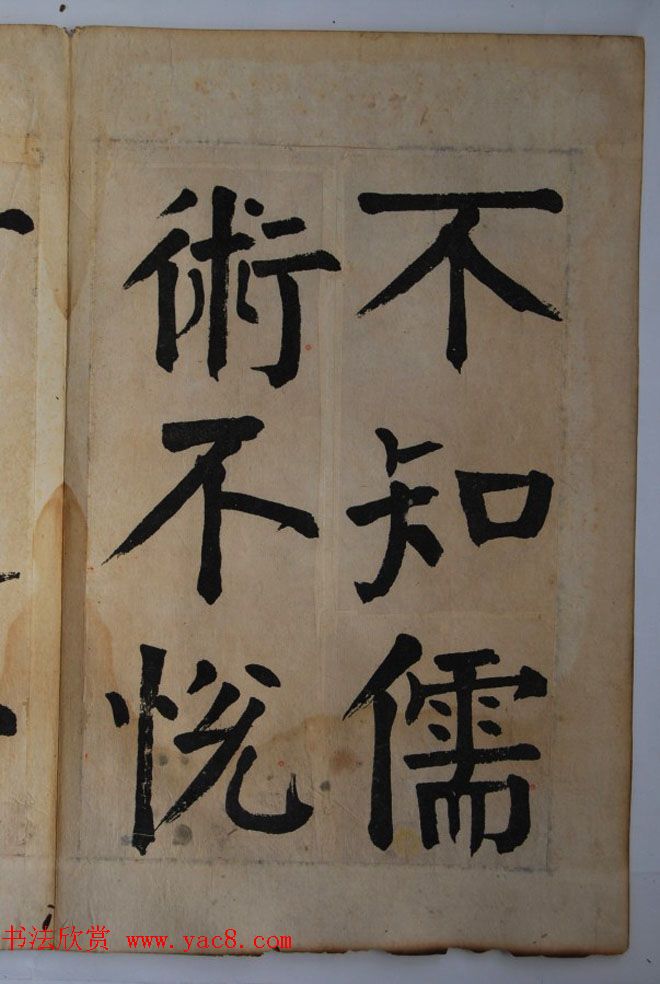 不知儒
術不悦
书法欣赏 www.yac8.com